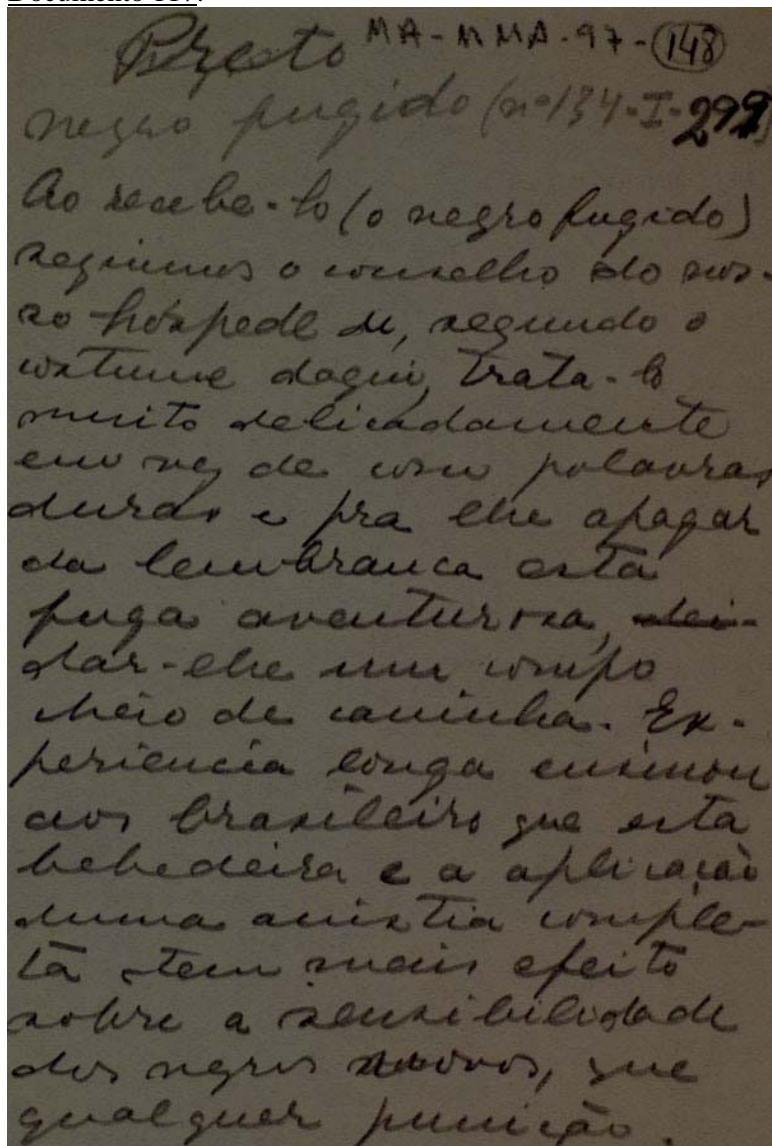 Documento 117:
Preto MA-MMA-97-(148)
negro fugido (nº134-I-299)
Ao recebe-lo (o negro fugido)
seguimos o conselho do nos-
so hóspede de, segundo o
costume daqui, trata-lo
muito delicadamente
em vez de com palavras
duras e pra lhe apagar
da lembrança esta
fuga aventurosa,
dar-lhe um copo
cheio de caninha. Ex-
periencia longa ensinou
aos brasileiro que esta
bebedeira e a aplicação
duma anistia comple-
ta tem mais efeito
sobre a sensibilidade
dos negros novos, que
qualquer punição.